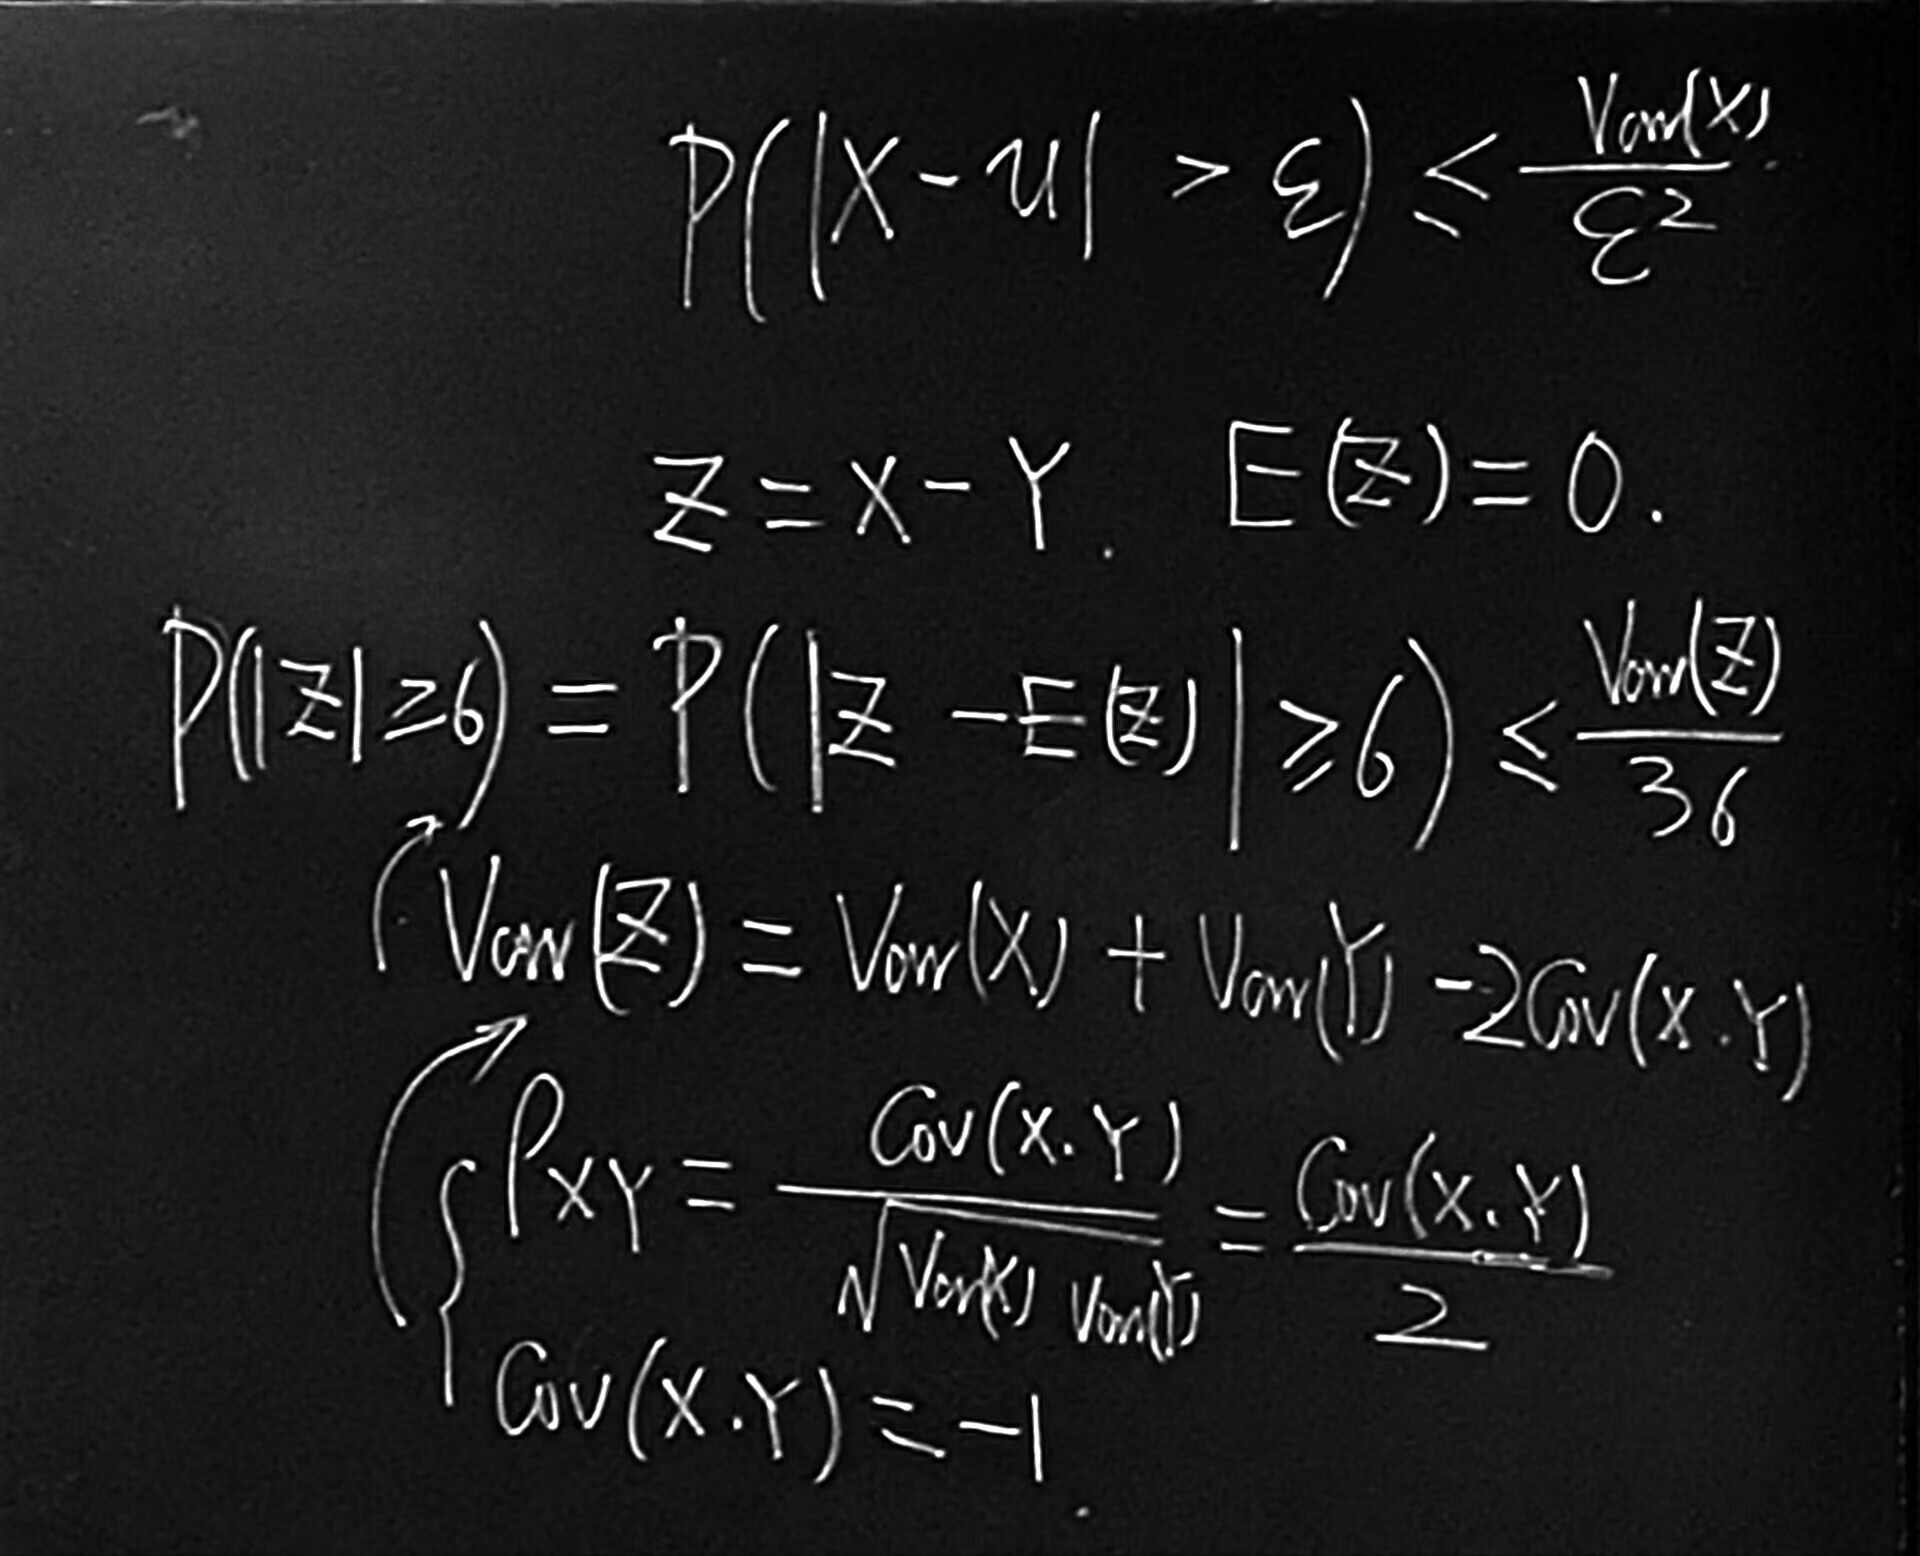 P(|X-u| > ε) ≤ Var(X)/ε²
Z = X-Y. E(Z) = 0.
P(|Z| ≥6) = P(|Z -E(Z)| ≥6) ≤ Var(Z)/36
Var(Z) = Var(X) + Var(Y) -2Cov(X.Y)
ρXY = Cov(X.Y)/√Var(X) Var(Y) = Cov(X.Y)/2
Cov(X.Y) = -1.